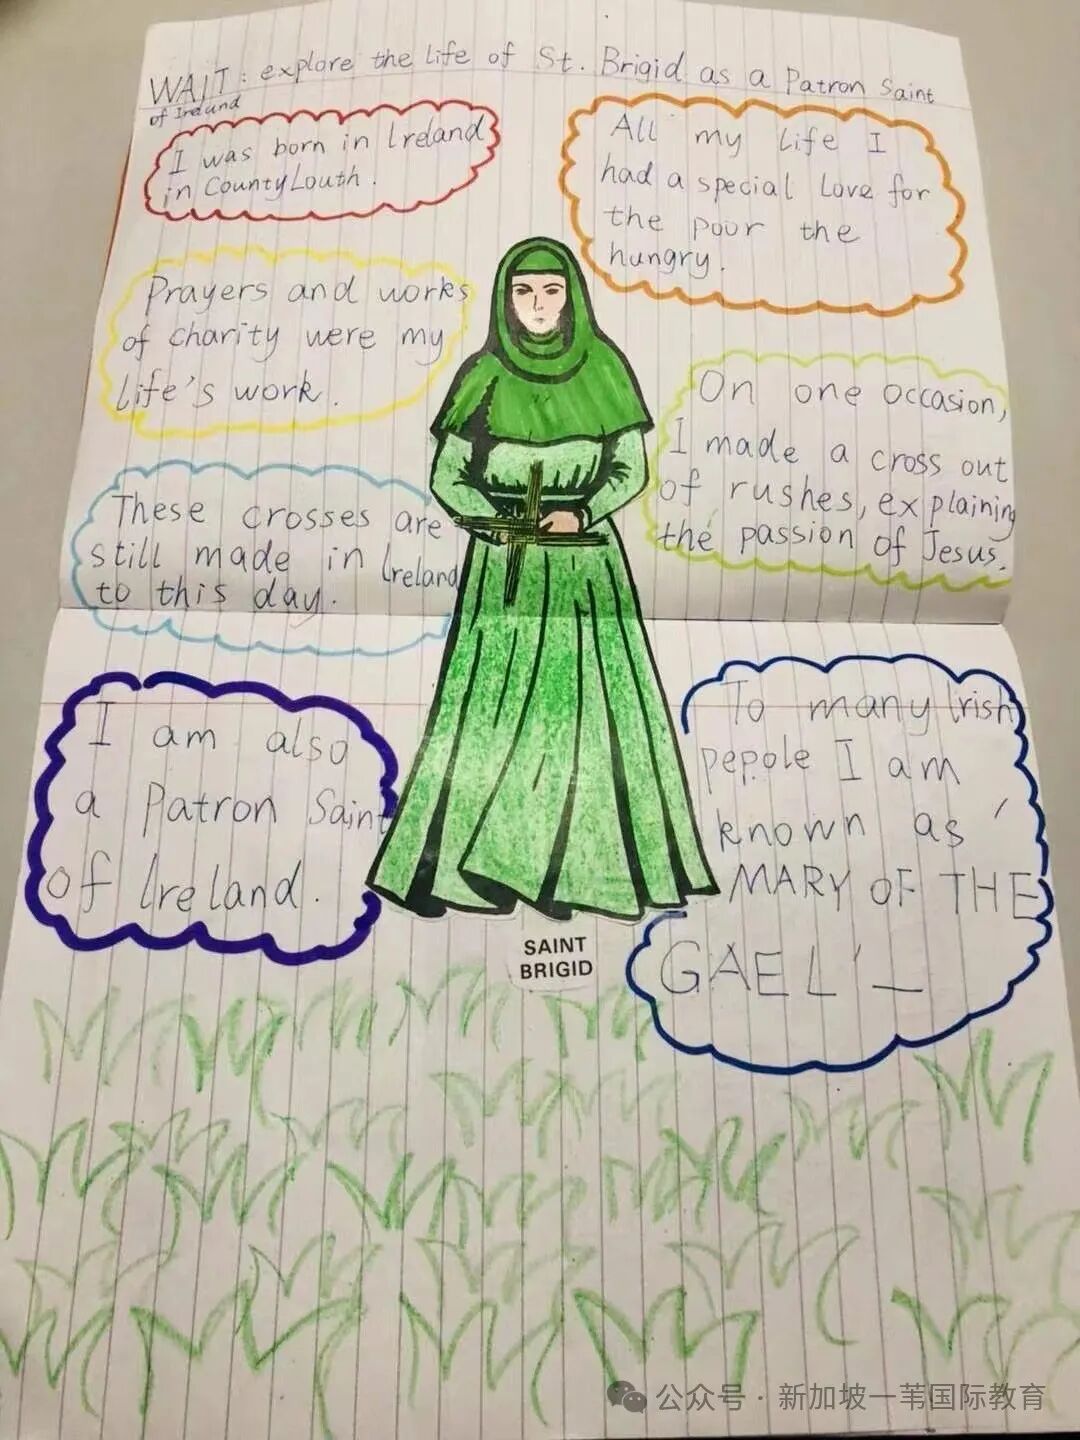 WALT: explore the life of St. Brigid as a Patron Saint
of Ireland
I was born in Ireland
in County Louth.
All my life I
had a special love for
the poor the
hungry.
Prayers and works
of charity were my
life's work.
On one occasion,
I made a cross out
of rushes, explaining
the passion of Jesus.
These crosses are
still made in Ireland
to this day.
I am also
a Patron Saint
of Ireland.
To many Irish
pepole I am
known as '
MARY OF THE
GAEL' _
SAINT
BRIGID
公众号 · 新加坡一苇国际教育